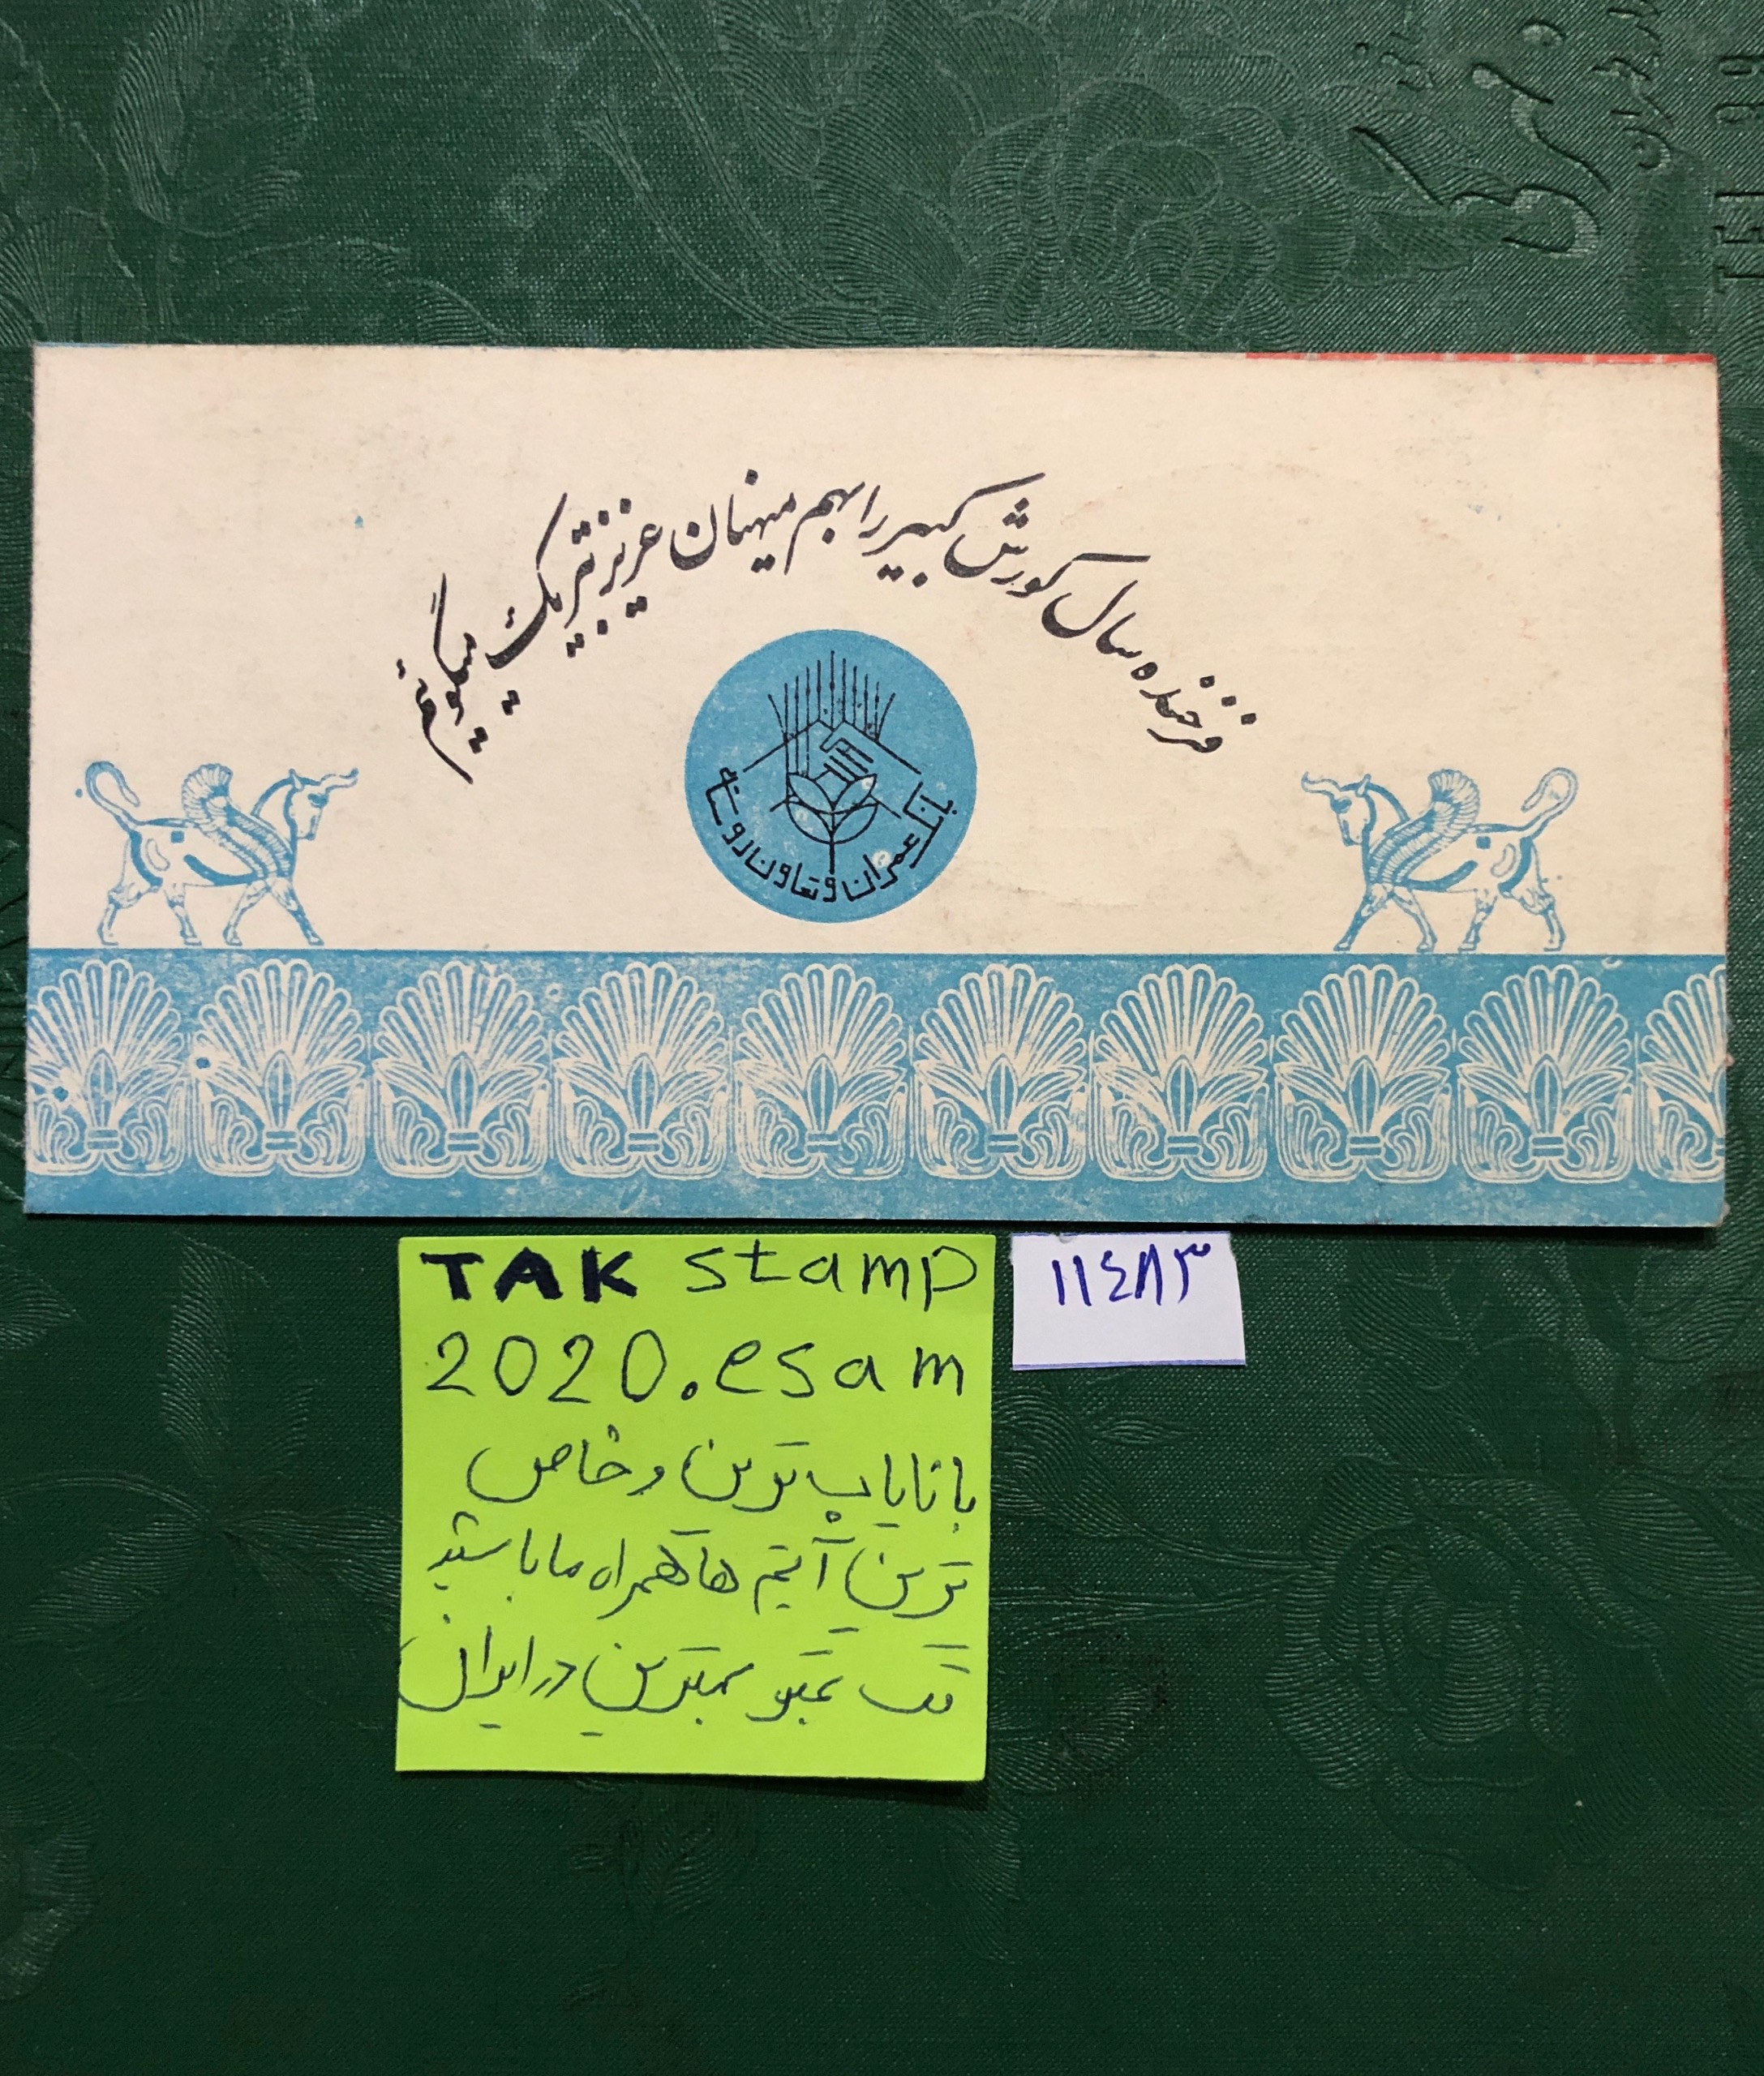 فرخنده سال کورش کبیر را بهم میهنان عزیز تبریک میگوئیم
بانک عمران و تعاون روستائی
TAK stamp
2020.esam
با نایاب ترین و خاص
ترین آیتم ها همراه ما باشید
تک تمبر بهترین در ایران
۱۱٤۸۳
TEL